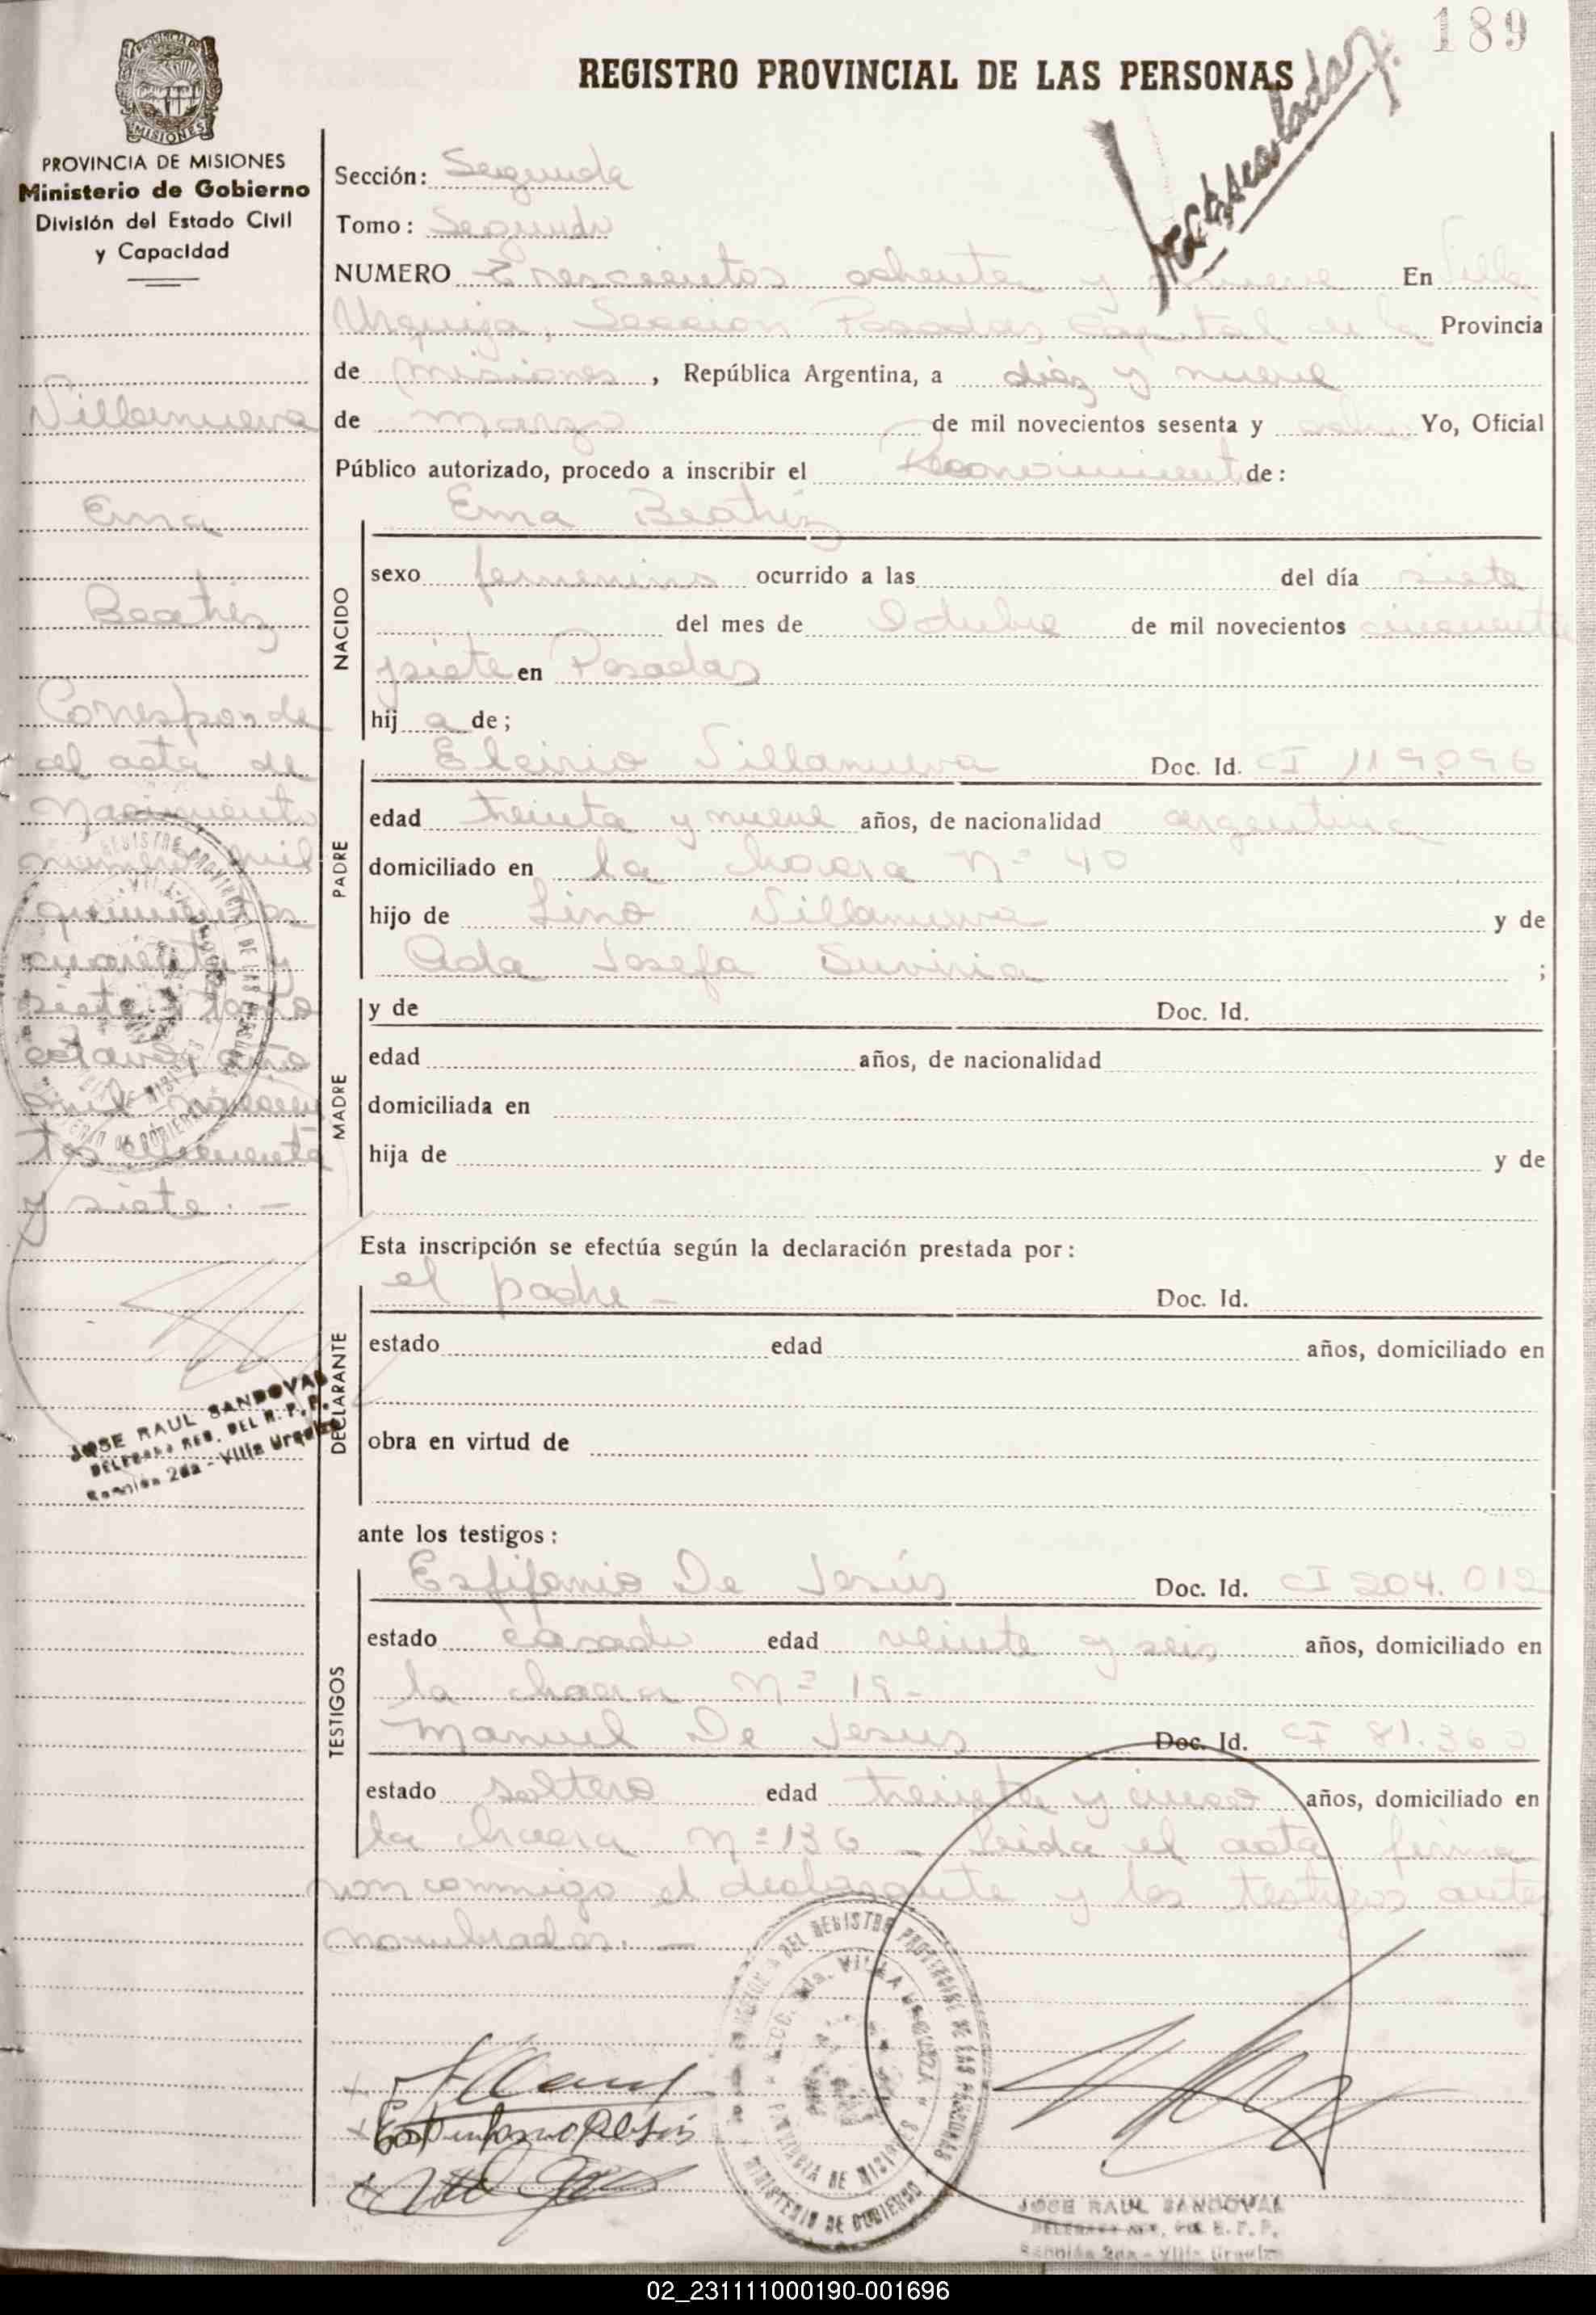 189
REGISTRO PROVINCIAL DE LAS PERSONAS
MISIONES
PROVINCIA DE MISIONES
Ministerio de Gobierno
División del Estado Civil
y Capacidad
Sección: Segunda
Tomo: Segundo
NUMERO Trescientos ochenta y nueve En Villa
Urquiza, Sección Posadas Capital de la Provincia
de Misiones, República Argentina, a diez y nueve
de Marzo de mil novecientos sesenta y ocho Yo, Oficial
Público autorizado, procedo a inscribir el Reconocimiento de:
Villanueva
Ema
Beatriz
Corresponde
al acta de
Nacimiento
número mil
quinientos
cuarenta y
siete tomo
octavo año
mil novecien
tos cincuenta
y siete. —
JOSE RAUL SANDOVAL
DELEGADO REG. DEL R. P. P.
Sección 2da - Villa Urquiza
NACIDO
Ema Beatriz
sexo femenino ocurrido a las del día siete
del mes de Octubre de mil novecientos cincuenta
y siete en Posadas
hij a de;
PADRE
Elcirio Villanueva Doc. Id. CI 119.096
edad treinta y nueve años, de nacionalidad argentina
domiciliado en la chacra Nº 40
hijo de Lino Villanueva y de
Ada Josefa Suvinia ;
MADRE
y de Doc. Id.
edad años, de nacionalidad
domiciliada en
hija de y de
Esta inscripción se efectúa según la declaración prestada por:
DECLARANTE
el padre — Doc. Id.
estado edad años, domiciliado en
obra en virtud de
ante los testigos:
TESTIGOS
Esfifanio De Jesús Doc. Id. CI 204.012
estado casado edad veinte y seis años, domiciliado en
la chacra Nº 19-
Manuel De Jesus Doc. Id. CI 81.360
estado soltero edad treinta y cinco años, domiciliado en
la chacra Nº 136 — Leida el acta firma
ron conmigo el declarante y los testigos antes
nombrados. —
DEL REGISTRO PROVINCIAL DE LAS PERSONAS
VILLA URQUIZA
PROVINCIA DE MISIONES
MINISTERIO DE GOBIERNO
JOSE RAUL SANDOVAL
DELEGADO REG. DEL R. P. P.
Sección 2da - Villa Urquiza
02_231111000190-001696